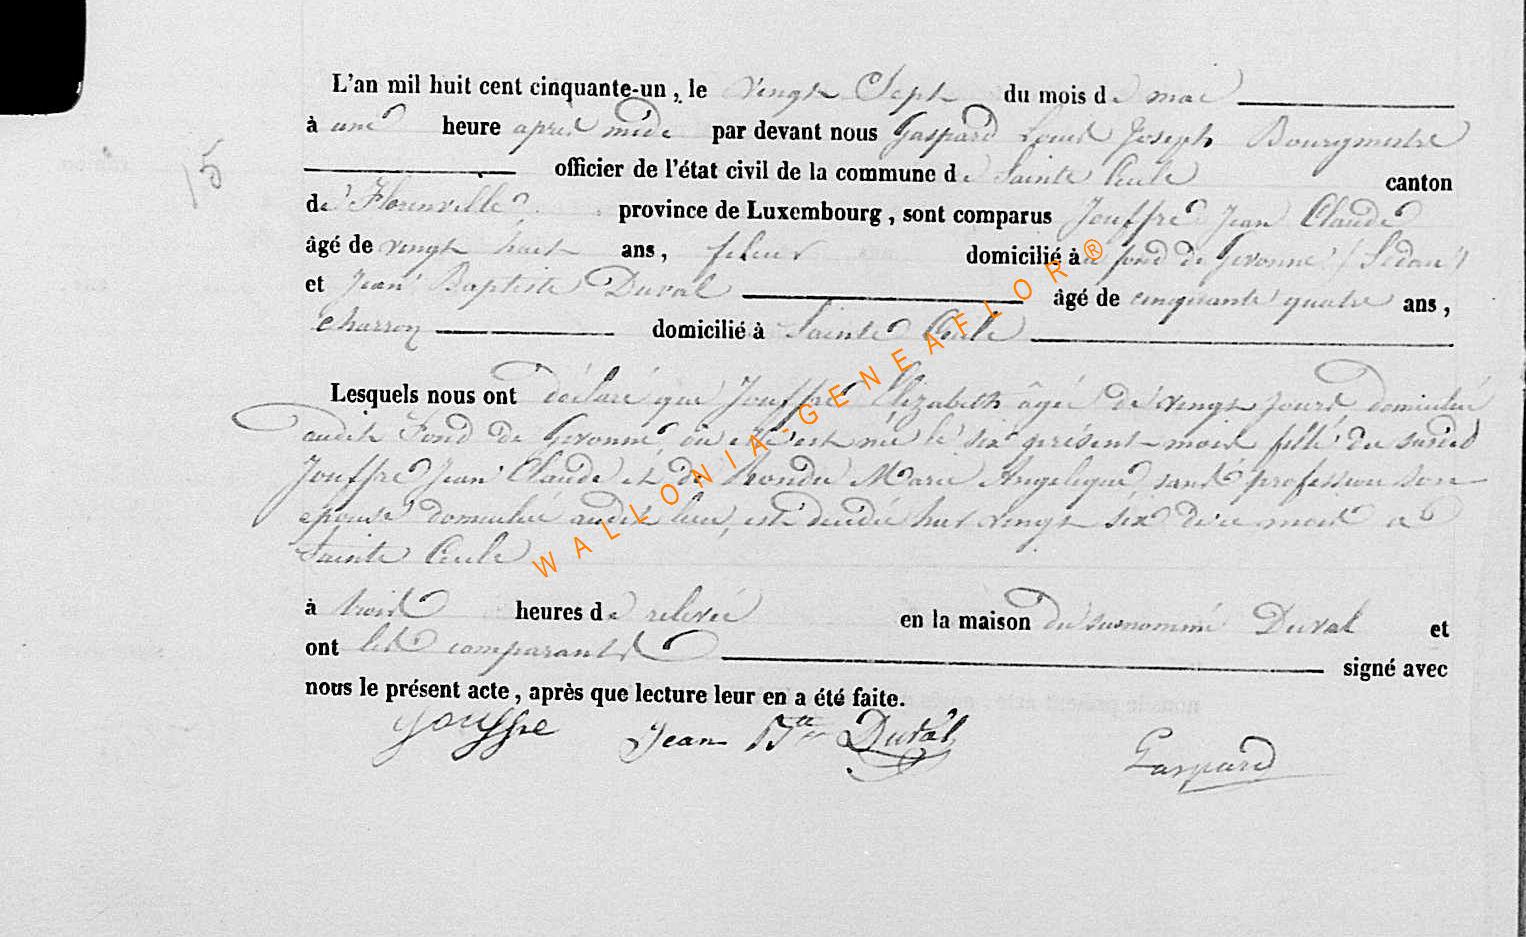 L'an mil huit cent cinquante-un, le vingt Sept du mois de mai
à une heure après midi par devant nous Gaspard Louis Joseph Bourgmestre
officier de l'état civil de la commune de Sainte Cécile canton
de Florenville province de Luxembourg, sont comparus Jouffre Jean Claude
âgé de vingt huit ans, fileur domicilié à fond de Givonne (Sédan)
et Jean Baptiste Duval âgé de cinquante quatre ans,
charron domicilié à Sainte Cécile
15
Lesquels nous ont déclaré que Jouffre Elizabeth âgée de vingt jours domiciliée
audit Fond de Givonne où elle est née le six présent mois fille du susdit
Jouffre Jean Claude et de Marie Angelique sans profession son
épouse domiciliée audit lieu, est décédée hier vingt six de ce mois à
Sainte Cécile
à trois heures de relevée en la maison du susnommé Duval et
ont les comparants signé avec
nous le présent acte, après que lecture leur en a été faite.
Jouffre Jean Bte Duval Gaspard
WALLONIA-GENEAFLOR®